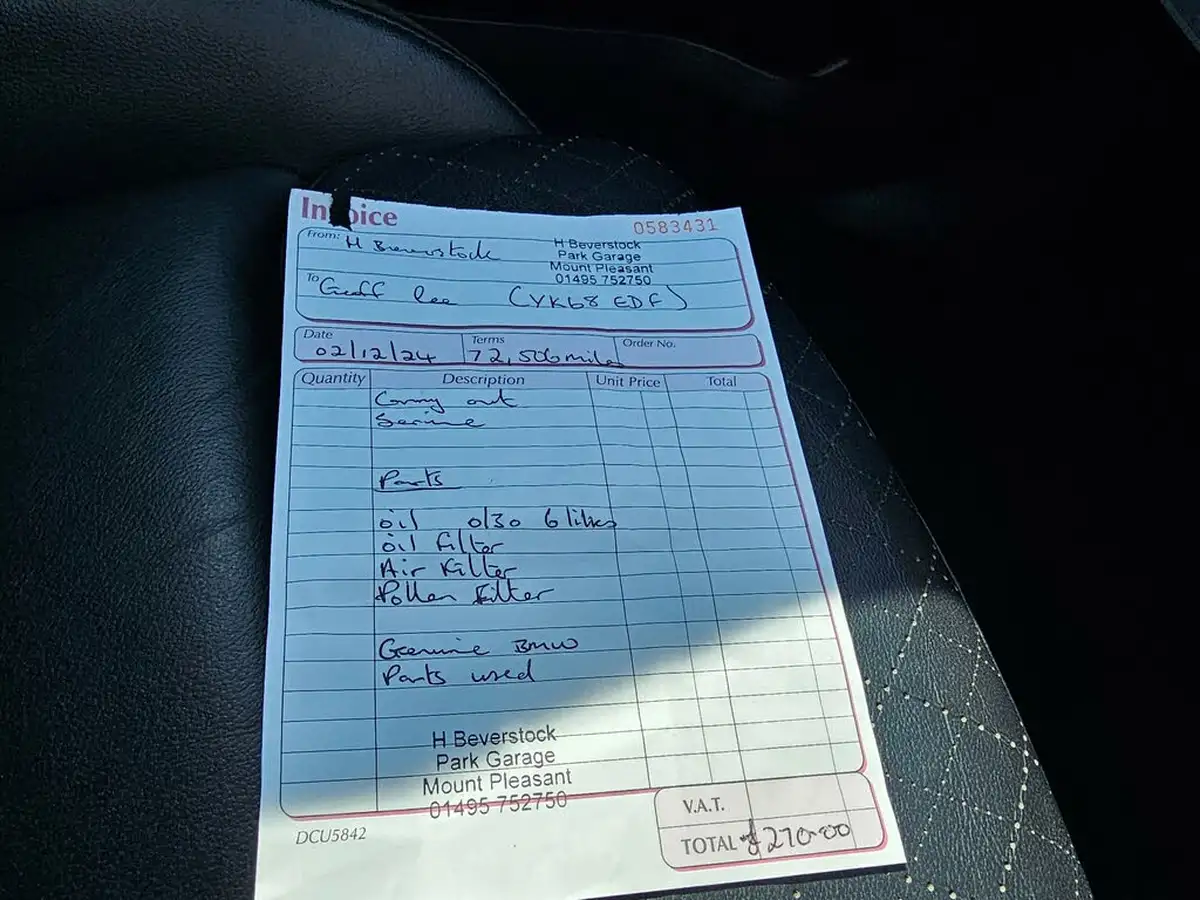 Invoice
0583431
From: H Beverstock
H Beverstock
Park Garage
Mount Pleasant
01495 752750
To Geoff Lee (YK68 EDF)
Date 02/12/24 Terms 72,506 miles Order No.
Quantity Description Unit Price Total
Carry out
Service
Parts
oil 0/30 6 litres
oil filter
Air Filter
Pollen Filter
Genuine BMW
Parts used
H Beverstock
Park Garage
Mount Pleasant
01495 752750
DCU5842
V.A.T.
TOTAL £270-00